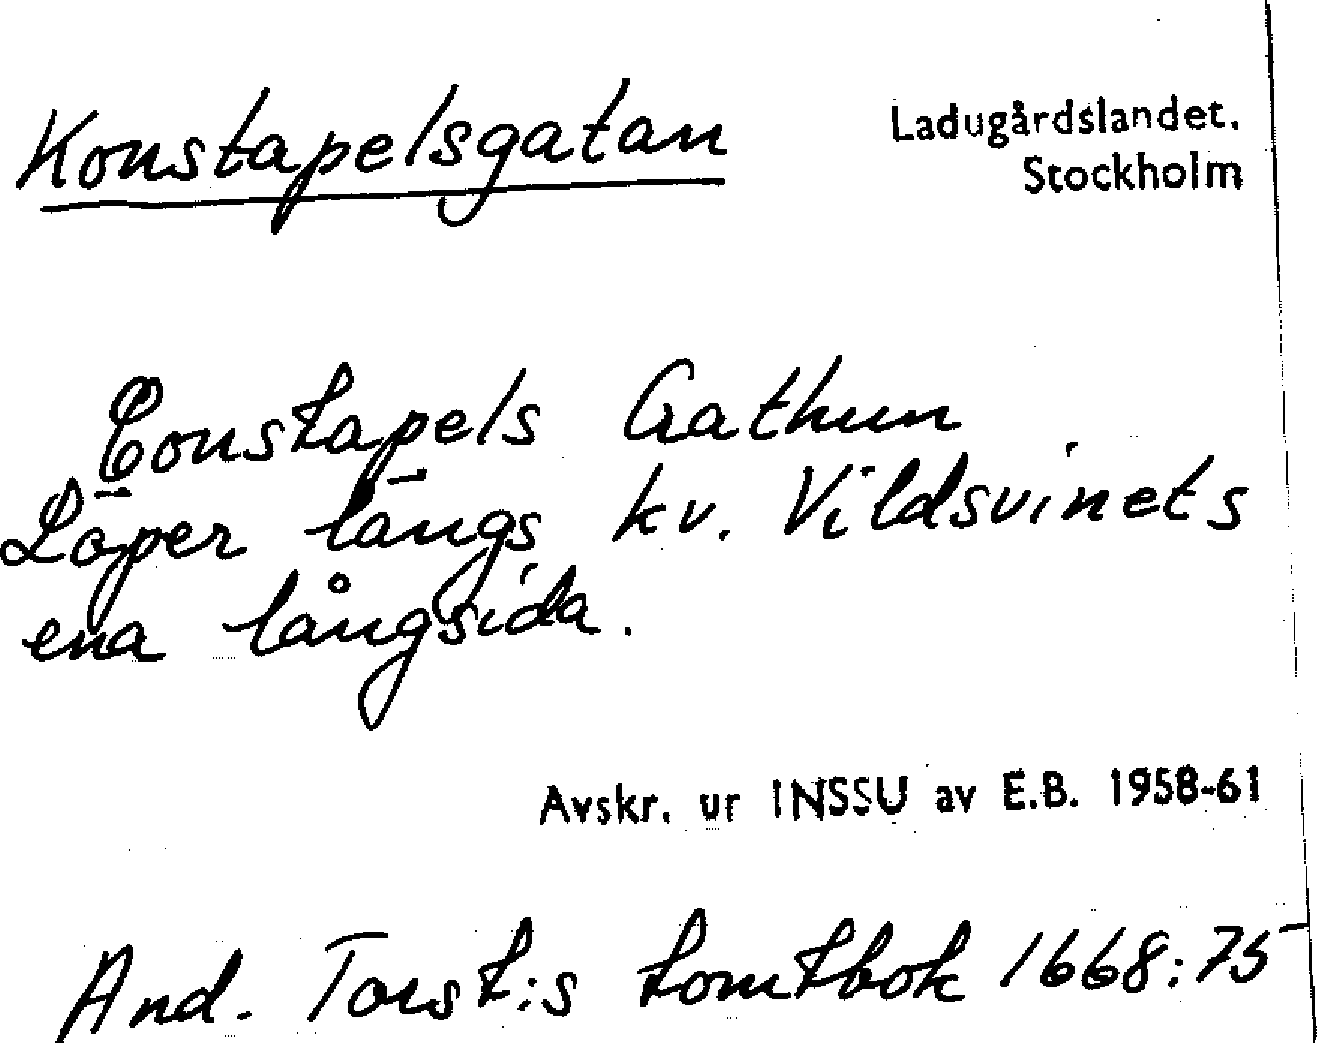 Konstapelsgatan
Ladugårdslandet.
Stockholm
Constapels Gathun
Löper längs kv. Vildsvinets
ena långsida.
Avskr. ur INSSU av E.B. 1958-61
And. Torst:s tomtbok 1668:75